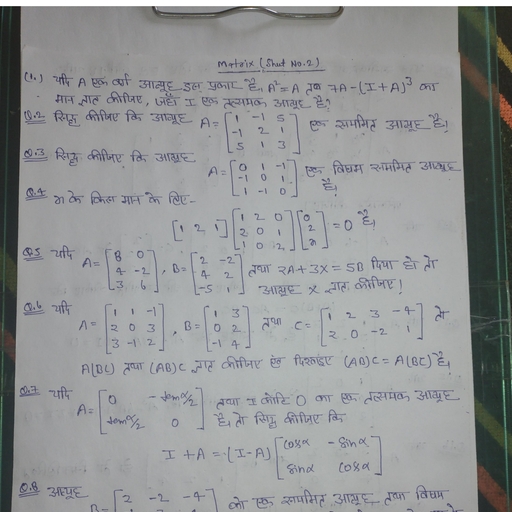 Matrix (Shut No.2)
(1.) यदि A एक वर्ग आव्यूह इस प्रकार है, A² = A तब 7A-(I+A)³ का
मान ज्ञात कीजिए, जहाँ I एक तत्समक आव्यूह है?
Q.2 सिद्ध कीजिए कि आव्यूह A = [1 -1 5; -1 2 1; 5 1 3] एक सममित आव्यूह है!
Q.3 सिद्ध कीजिए कि आव्यूह A = [0 1 -1; -1 0 1; 1 -1 0] एक विषम सममित आव्यूह है,
Q.4 x के किस मान के लिए-
[1 2 1] [1 2 0; 2 0 1; 1 0 2] [0; 2; x] = 0 है,
Q.5 यदि A = [8 0; 4 -2; 3 6], B = [2 -2; 4 2; -5 1] तथा 2A+3X = 5B दिया हो तो
आव्यूह X ज्ञात कीजिए!
Q.6 यदि A = [1 1 -1; 2 0 3; 3 -1 2], B = [1 3; 0 2; -1 4] तथा C = [1 2 3 -4; 2 0 -2 1] तो
A(BC) तथा (AB)C ज्ञात कीजिए एवं दिखाइए (AB)C = A(BC) है,
Q.7 यदि A = [0 -tanα/2; tanα/2 0] तथा I कोटि 0 का एक तत्समक आव्यूह
है, तो सिद्ध कीजिए कि
I + A = (I-A) [cosα -sinα; sinα cosα]
Q.8 आव्यूह [2 -2 -4 को एक सममित आव्यूह तथा विषम
B =